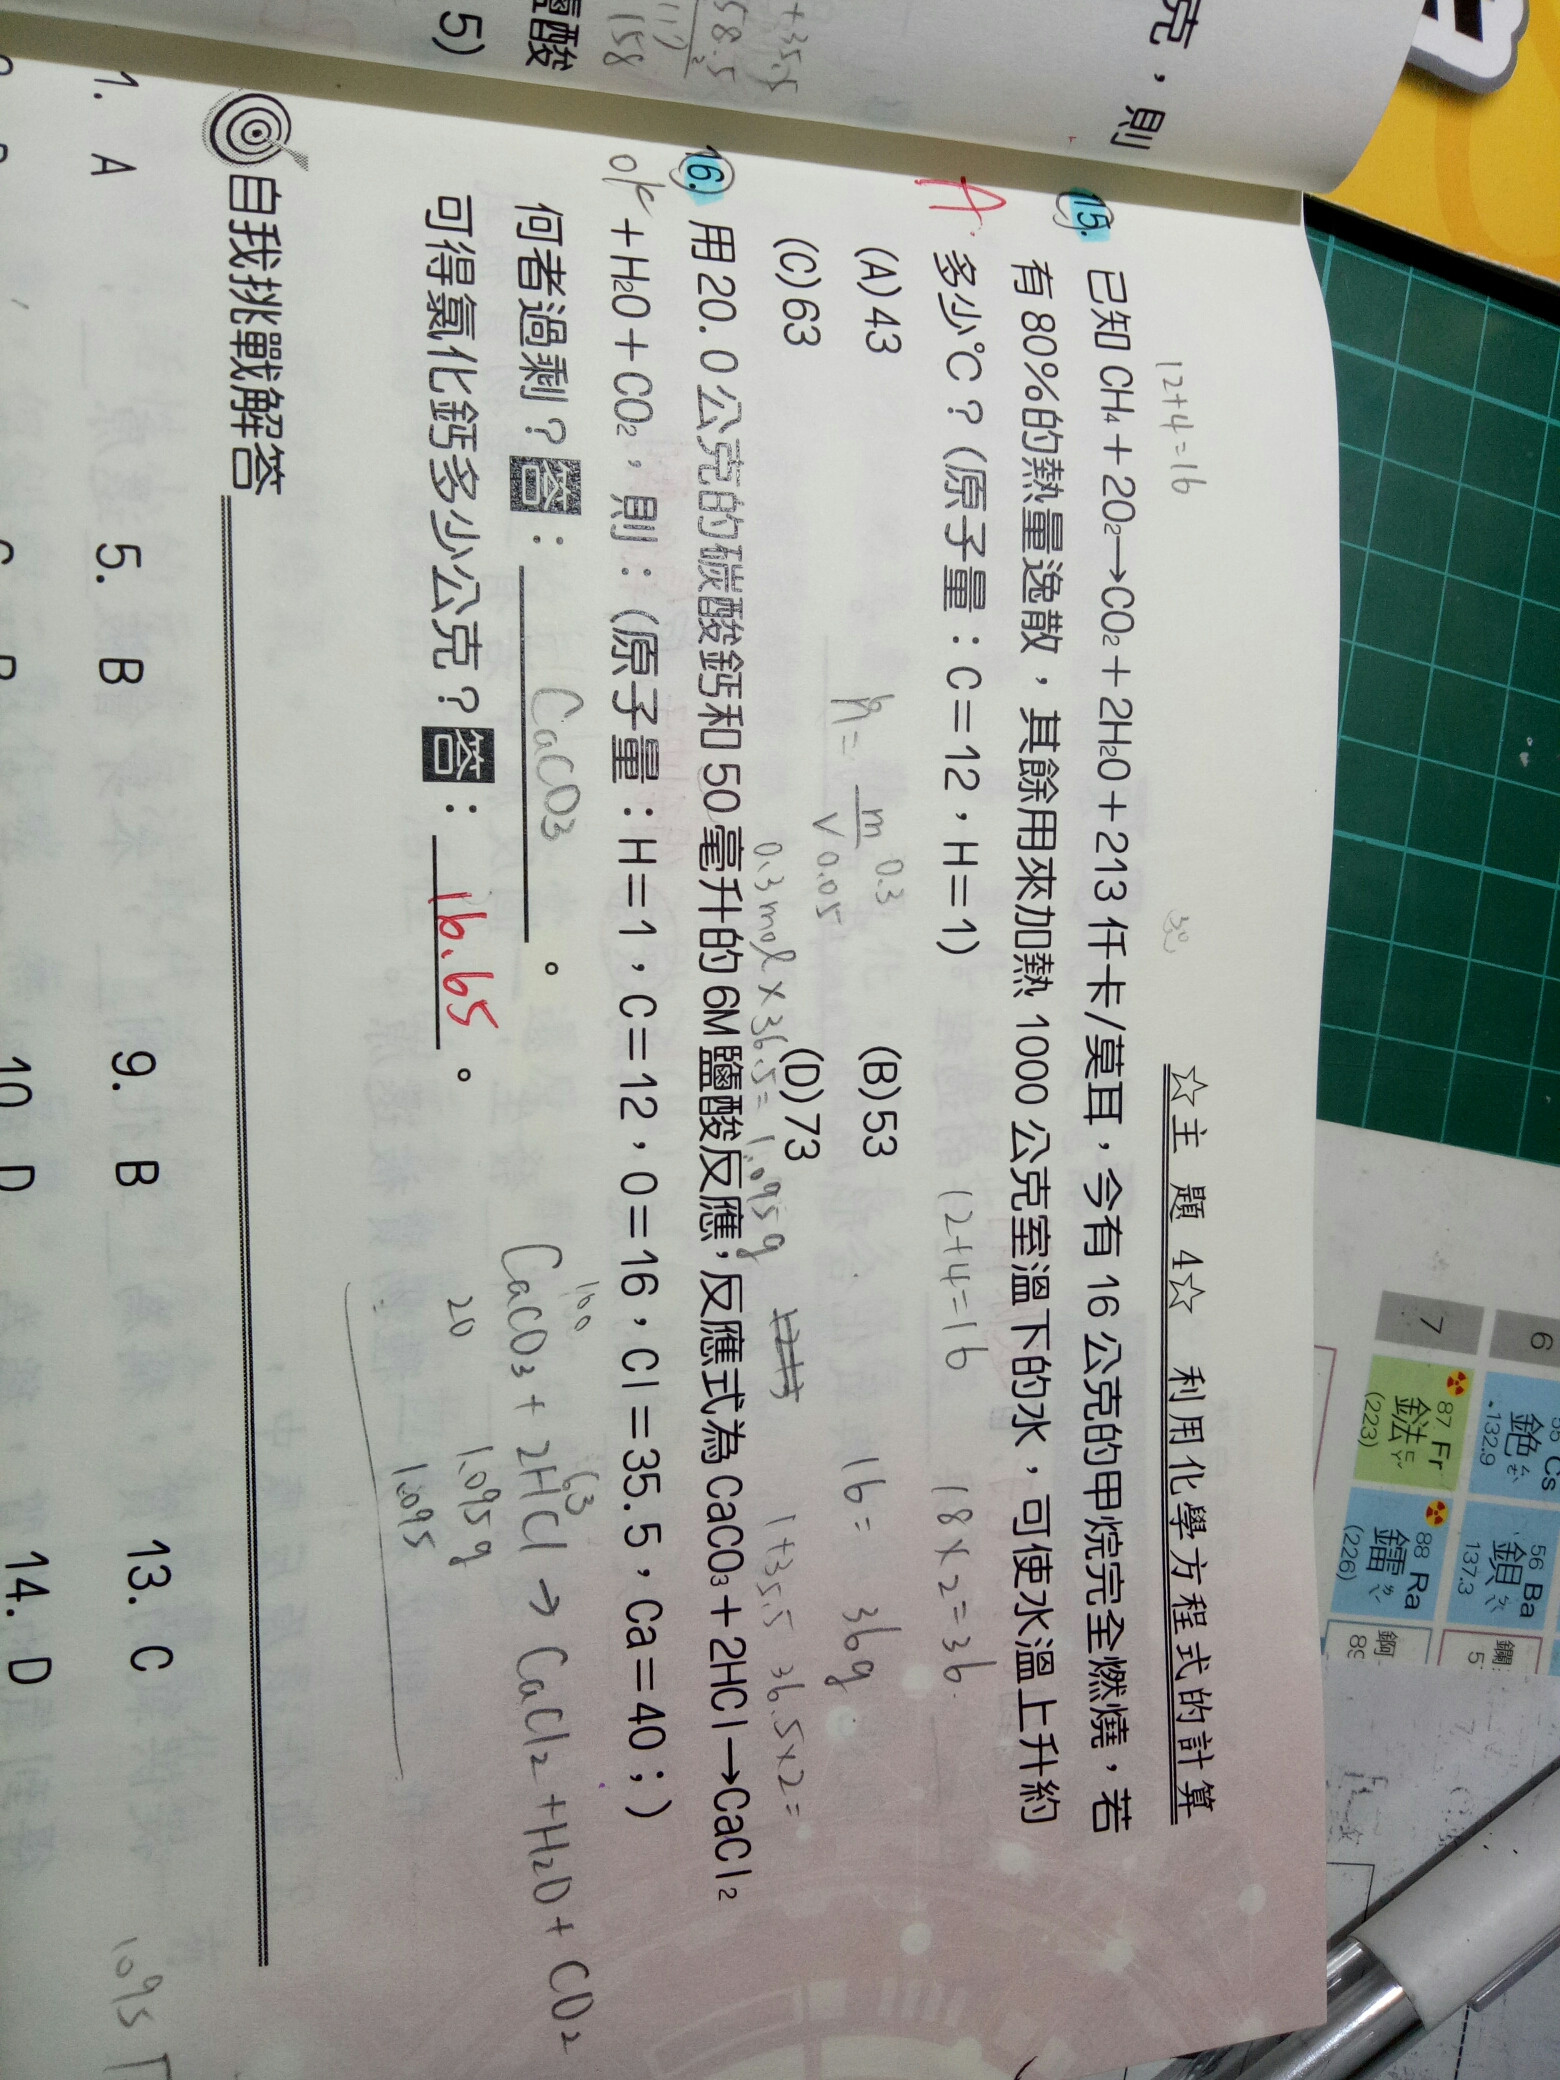 克，則
+35.5
58.5
158
鹽酸
5)
☆主 題 4☆ 利用化學方程式的計算
12+4=16
15. 已知 CH₄+2O₂→CO₂+2H₂O+213 仟卡/莫耳，今有 16 公克的甲烷完全燃燒，若
有 80%的熱量逸散，其餘用來加熱 1000 公克室溫下的水，可使水溫上升約
A 多少℃？(原子量：C=12，H=1)
12+4=16 18×2=36
(A)43 (B)53
16= 36g
(C)63 (D)73
m 0.3
V 0.05
1+35.5 36.5×2=
0.3mol×36.5=1.095g
16. 用 20.0 公克的碳酸鈣和 50 毫升的 6M 鹽酸反應，反應式為 CaCO₃+2HCl→CaCl₂
ok +H₂O+CO₂，則：(原子量：H=1，C=12，O=16，Cl=35.5，Ca=40；)
何者過剩？答：CaCO3。
100 63
CaCO3+2HCl→CaCl2+H2O+CO2
20 1.095g
1.095
可得氯化鈣多少公克？答：16.65。
自我挑戰解答
1. A 5. B 9. B 13. C
10. D 14. D
1095
6
7
55 Cs
鉋
132.9
56 Ba
鋇
137.3
87 Fr
鍅
(223)
88 Ra
鐳
(226)
鑭
5
錒
89